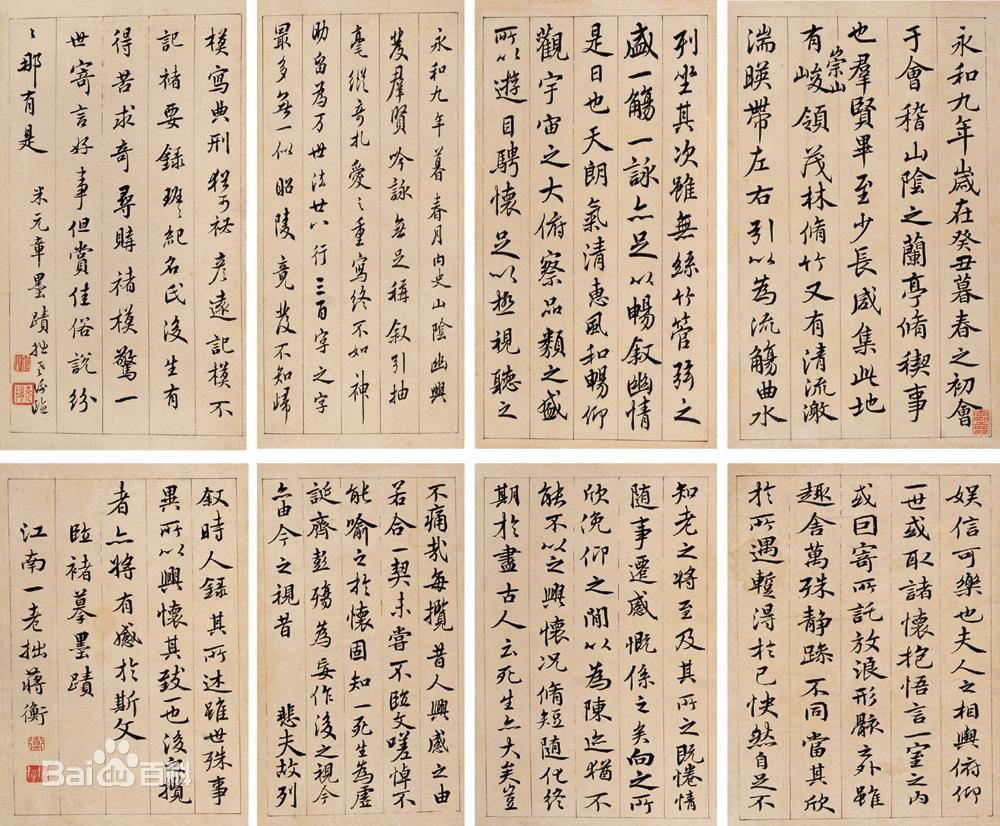 永和九年歲在癸丑暮春之初會
于會稽山陰之蘭亭脩稧事
也羣賢畢至少長咸集此地
有崇山峻領茂林脩竹又有清流激
湍暎帶左右引以為流觴曲水
列坐其次雖無絲竹管弦之
盛一觴一詠亦足以暢叙幽情
是日也天朗氣清惠風和暢仰
觀宇宙之大俯察品類之盛
所以遊目騁懷足以極視聽之
永和九年暮春月內史山陰幽興
發羣賢吟詠無足稱叙引抽
毫縱奇札愛〻重寫終不如神
助留為万世法廿八行三百字之字
最多無一似昭陵竟發不知歸
模寫典刑猶可祕彥遠記模不
記褚要錄班〻紀名氏後生有
得苦求奇尋購褚模驚一
世寄言好事但賞佳俗說紛
〻那有是 米元章墨蹟拙老衡臨
娛信可樂也夫人之相與俯仰
一世或取諸懷抱悟言一室之內
或因寄所託放浪形骸之外雖
趣舍萬殊靜躁不同當其欣
於所遇蹔得於己快然自足不
知老之將至及其所之既惓情
隨事遷感慨係之矣向之所
欣俛仰之閒以為陳迹猶不
能不以之興懷況脩短隨化終
期於盡古人云死生亦大矣豈
不痛哉每攬昔人興感之由
若合一契未嘗不臨文嗟悼不
能喻之於懷固知一死生為虛
誕齊彭殤為妄作後之視今
亦由今之視昔 悲夫故列
叙時人錄其所述雖世殊事
異所以興懷其致一也後之攬
者亦將有感於斯文
臨褚摹墨蹟
江南一老拙蔣衡
Baidu百科